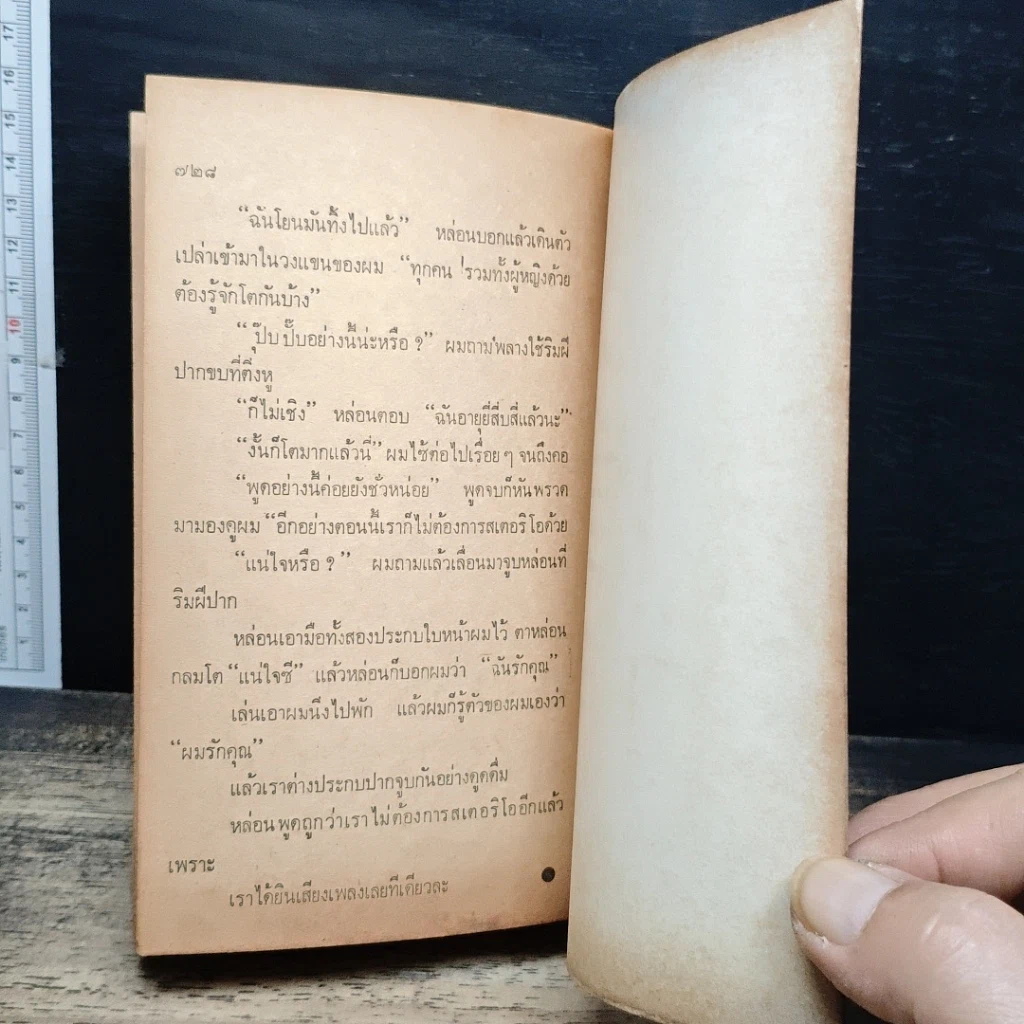 ๗๒๘
“ฉันโยนมันทิ้งไปแล้ว” หล่อนบอกแล้วเดินตัว
เปล่าเข้ามาในวงแขนของผม “ทุกคน รวมทั้งผู้หญิงด้วย
ต้องรู้จักโตกันบ้าง”
“ปุ๊บปั๊บอย่างนี้น่ะหรือ ?” ผมถามพลางใช้ริมฝี
ปากขบที่ติ่งหู
“ก็ไม่เชิง” หล่อนตอบ “ฉันอายุยี่สิบสี่แล้วนะ”
“งั้นก็โตมากแล้วนี่” ผมไซ้ต่อไปเรื่อย ๆ จนถึงคอ
“พูดอย่างนี้ค่อยยังชั่วหน่อย” พูดจบก็หันพรวด
มามองดูผม “อีกอย่างตอนนี้เราก็ไม่ต้องการสเตอริโอด้วย
“แน่ใจหรือ ?” ผมถามแล้วเลื่อนมาจูบหล่อนที่
ริมฝีปาก
หล่อนเอามือทั้งสองประกบใบหน้าผมไว้ ตาหล่อน
กลมโต “แน่ใจซี” แล้วหล่อนก็บอกผมว่า “ฉันรักคุณ”
เล่นเอาผมนิ่งไปพัก แล้วผมก็รู้ตัวของผมเองว่า
“ผมรักคุณ”
แล้วเราต่างประกบปากจูบกันอย่างดูดดื่ม
หล่อนพูดถูกว่าเราไม่ต้องการสเตอริโออีกแล้ว
เพราะ
เราได้ยินเสียงเพลงเลยทีเดียวละ
17
16
15
14
13
12
11
10
9
8
7
6
5
4
3
2
1